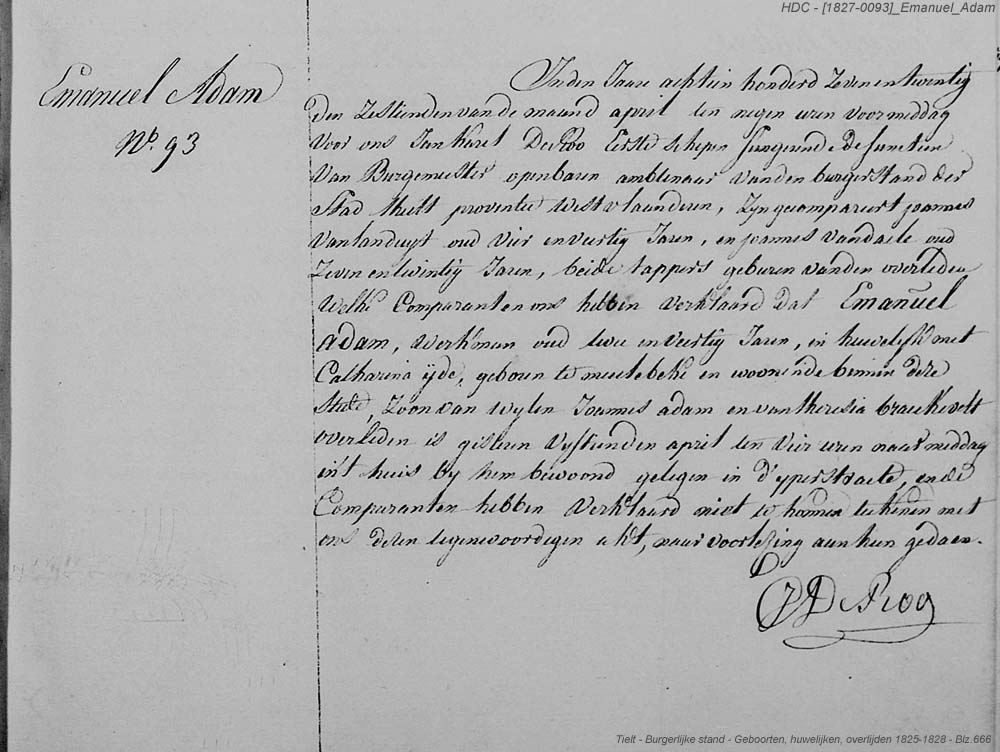 HDC - [1827-0093]_Emanuel_Adam
Emanuel Adam
N.º 93
In den Jaare achtien honderd Zeven en twintig
den Zestienden van de maand april ten negen uren voormiddag
voor ons Jan Karel DeRoo Eerste schepen fungerende de functien
van Burgemeester openbaren ambtenaar van den burgerstand der
Stad thielt provintie westvlaanderen, Zyn gecompareert joannes
vanlanduyt oud vier en veertig Jaren, en joannes vandaele oud
Zeven en twintig Jaren, beide tappers geburen van den overleden
welke Comparanten ons hebben verklaard dat Emanuel
Adam, werkman oud twee en veertig Jaren, in huwelyk met
Catharina ÿde, geboren te meulebeke en woonende binnen deze
Stad, Zoon van wylen Joannes adam en van theresia braekevelt
overleden is gisteren vyftienden april ten vier uren naar middag
in't huis by hem bewoond gelegen in d'yperstraete, en de
Comparanten hebben verklaard niet te konnen teekenen met
ons dezen tegenwoordigen akt, naar voorlezing aan hun gedaen.
JDeRoo
Tielt - Burgerlijke stand - Geboorten, huwelijken, overlijden 1825-1828 - Blz.666